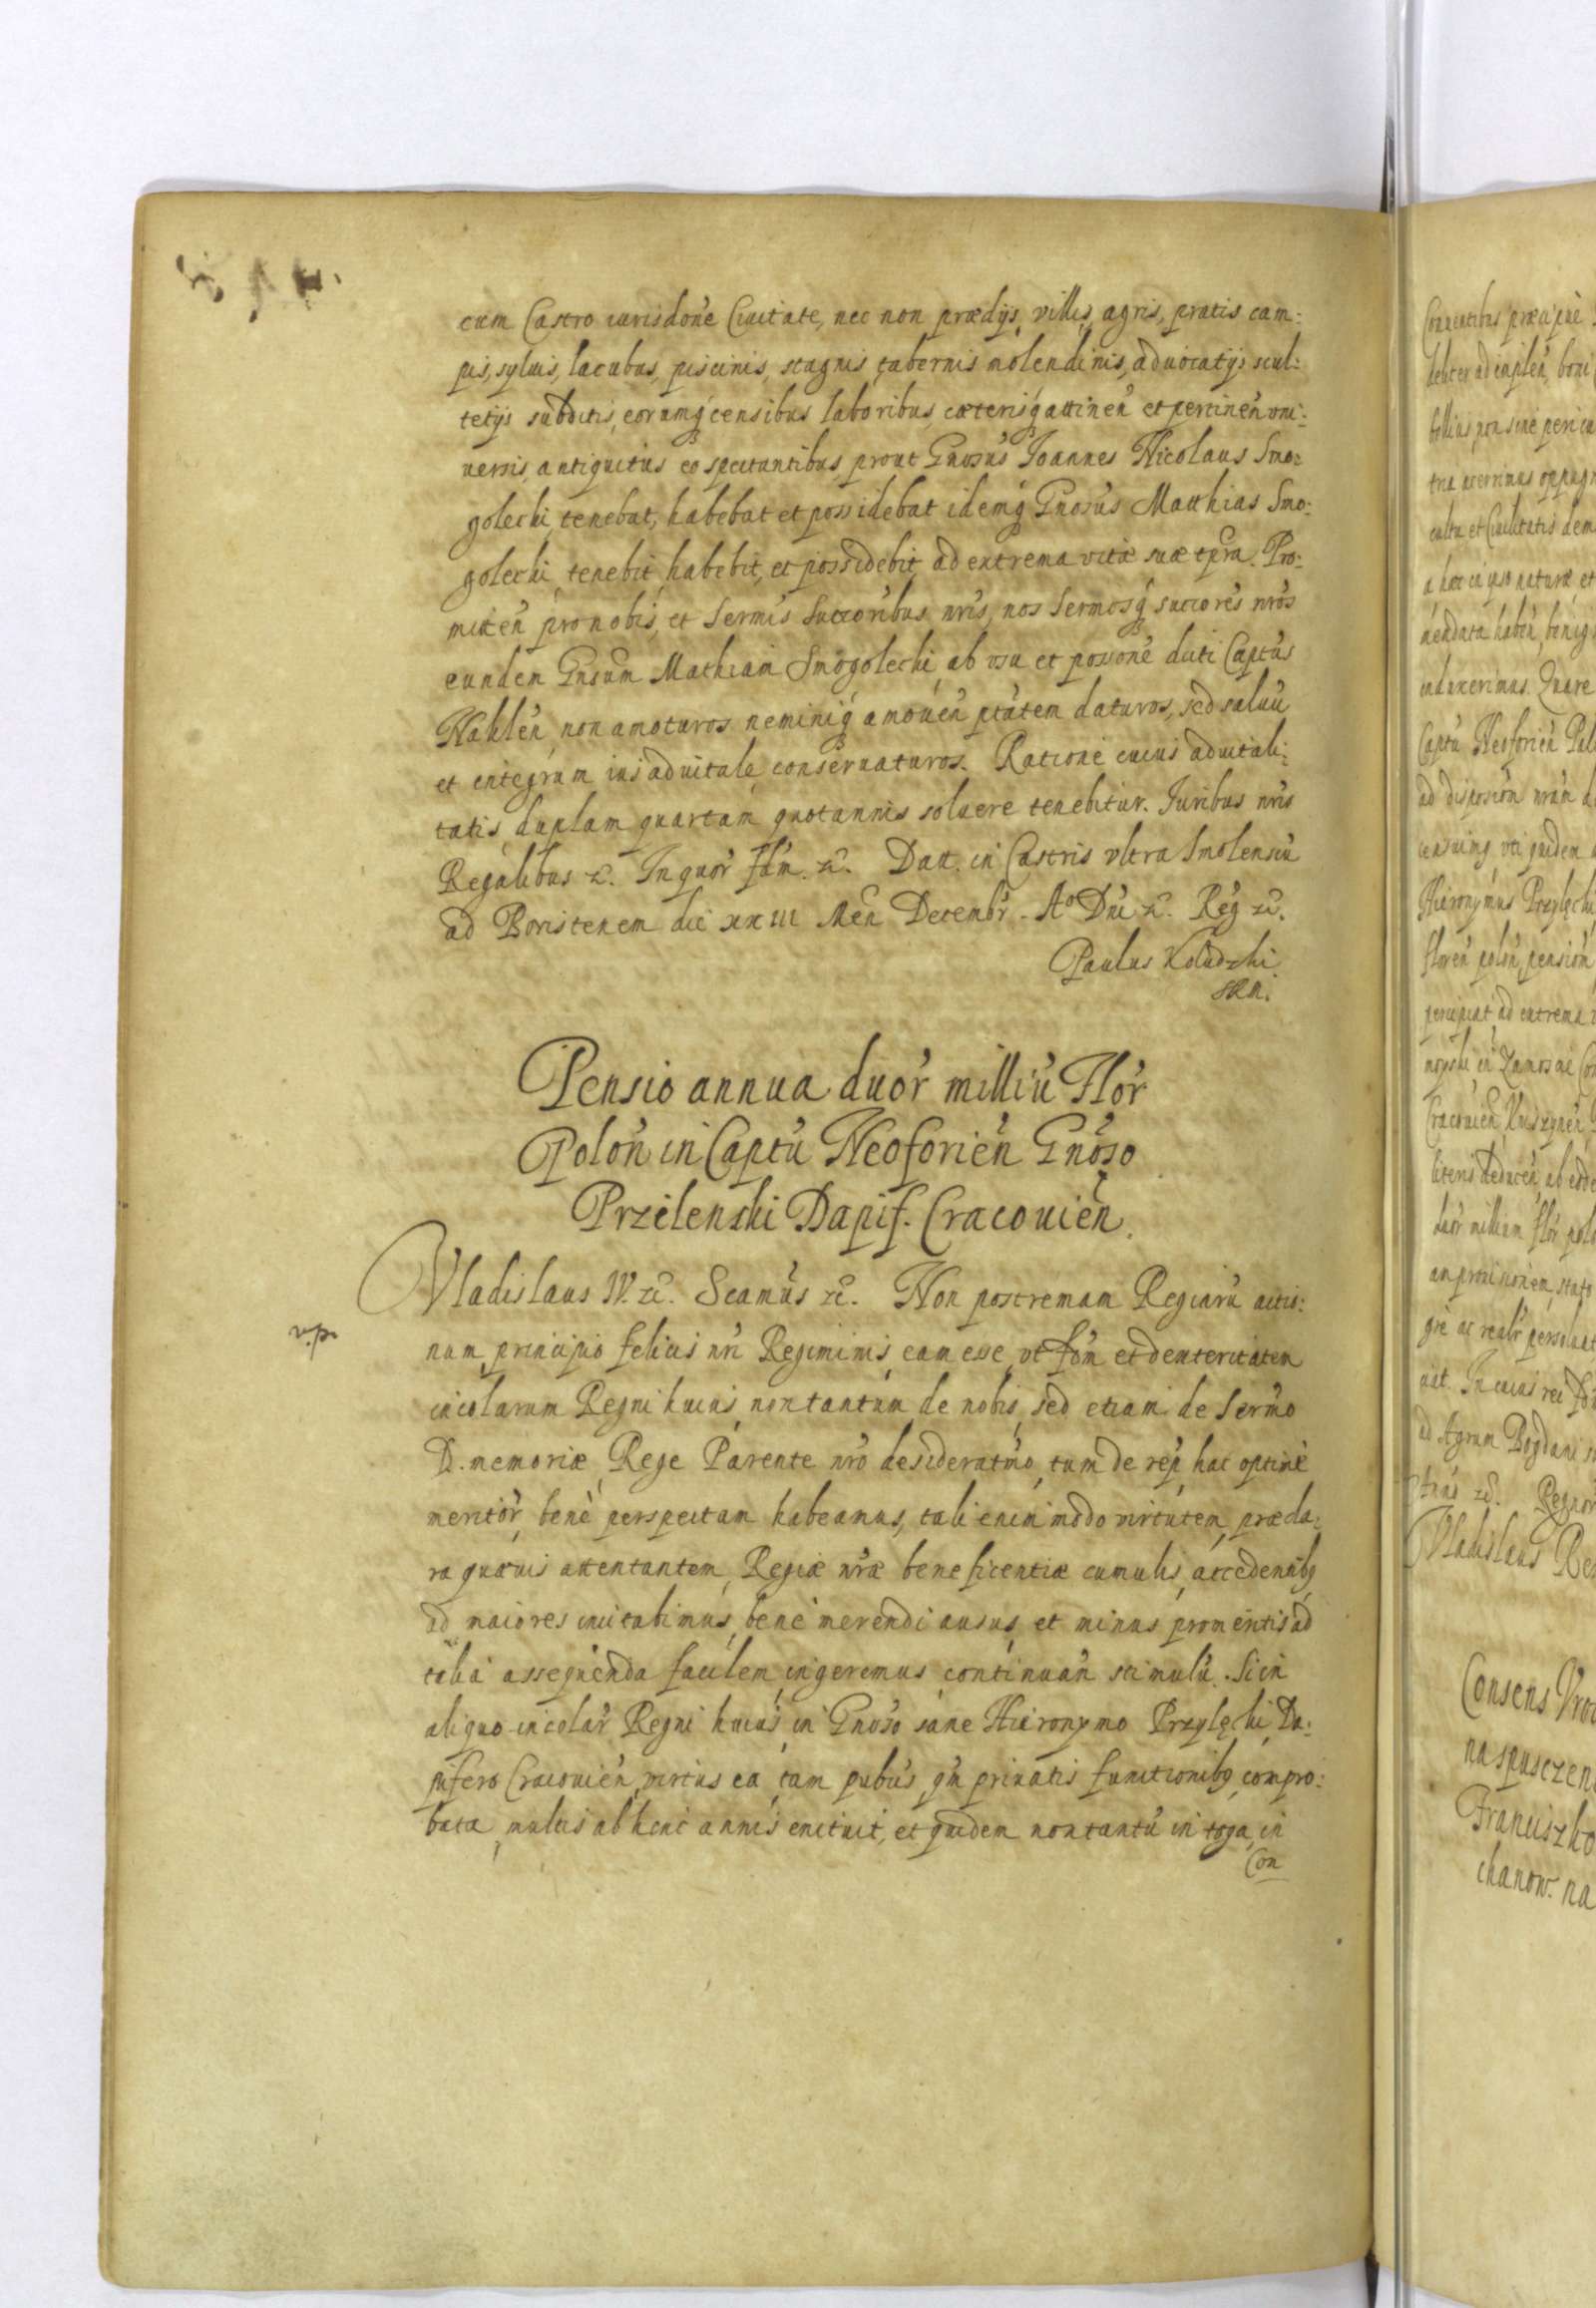 cum Castro iurisdone Ciuitate, nec non prædijs, villis, agris, pratis cam:
pis, syluis, lacubus, piscinis, stagnis, tabernis molendinis, aduocatijs scul:
tetijs subditis, eorumq́ censibus laboribus, cæterisq́ attineñ et pertineñ vni:
uersis, antiquitus eo spectantibus, prout Gnosus Joannes Nicolaus Smo:
golecki tenebat, habebat et possidebat idemq́ Gnosus Matthias Smo:
golecki tenebit, habebit, et possidebit ad extrema vitæ suæ tpra. Pro:
mitteñ pro nobis, et Sermis Succoribus nris, nos Sermosq́ succores nros
eundem Gnsum Mathiam Smogolecki ab vsu et possone dicti Captus
Nakleñ non amoturos neminiq́ amoueñ ptatem daturos, sed saluũ
et integrum ius aduitale conseruaturos. Ratione cuius aduitali:
tatis duplam quartam quotannis soluere tenebitur. Juribus nris
Regalibus &c. In quor̃ fidm. &c. Datt. in Castris vltra Smolenscũ
ad Boristenem die XXIII Meñ Decembr. Aº Dni &c. Reg &c.
Paulus Kołudzki
Skn.
Pensio annua duor̃ milliũ Flor̃
Poloñ in Captũ Neoforieñ Gnoso
Przilenski Dapif. Cracouieñ.
Vladislaus IV. &c. Scamus &c. Non postremam Regiarũ actio:
num principio felicis nri Regiminis eam esse, vt fidm et dexteritatem
incolarum Regni huius, non tantum de nobis, sed etiam de Sermo
D. memoriæ Rege Parente nro desideratmo, tum de rep hac optime
meritor̃, bene perspectam habeamus, tali enim modo virtutem præcla:
ra quæuis attentantem, Regiæ nræ beneficentiæ cumulis accedentibq
ad maiores incitabimus bene merendi ausus, et minus promentis ad
talia assequenda facilem ingeremus continuañ stimulũ. Si in
aliquo incolar̃ Regni huius in Gnoso sane Hieronymo Przyłęcki Da:
pifero Cracouieñ virtus ea, tam pubcis qm priuatis functionibq compro:
bata, multis abhinc annis enituit, et quidem non tantũ in toga, in
Con